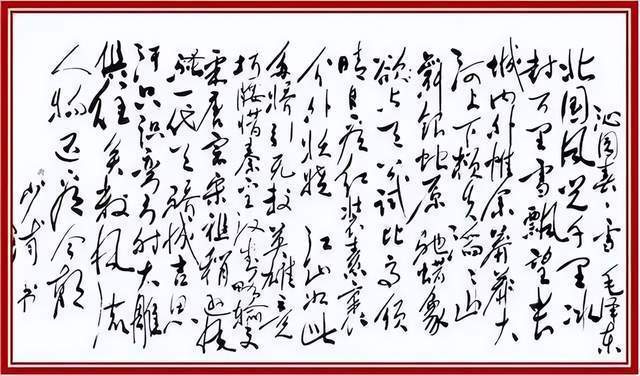 沁园春·雪 毛泽东
北国风光千里冰
封万里雪飘望长
城内外惟余莽莽大
河上下顿失滔滔山
舞银蛇原驰蜡象
欲与天公试比高须
晴日看红装素裹
分外妖娆 江山如此
多娇引无数英雄竞
折腰惜秦皇汉武略输文
采唐宗宋祖稍逊风
骚一代天骄成吉思
汗只识弯弓射大雕
俱往矣数风流
人物还看今朝
书